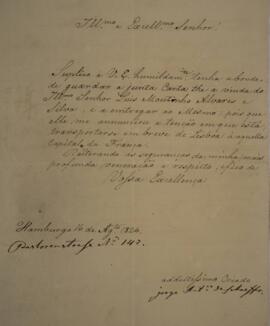 Ill.mo e Excell.mo Senhor!
Suplico a V. E. humildam.te tenha a bond.e
de guardar a junta Carta the a vinda do
Ill.mo Senhor Luis Moutinho Alvares e
Silva; e a entregar ao Mesmo; pois que
elle me annunciou a tenção em que está
transportarse em breve de Lisboa á aquella
Capital da França.
Reiterando as seguranças da minha mais
profunda veneração e respeito, e fico de
Vossa Excellença
Hamburgo 16 de Ag.to 1824.
N.o 143.
addictissimo Criado